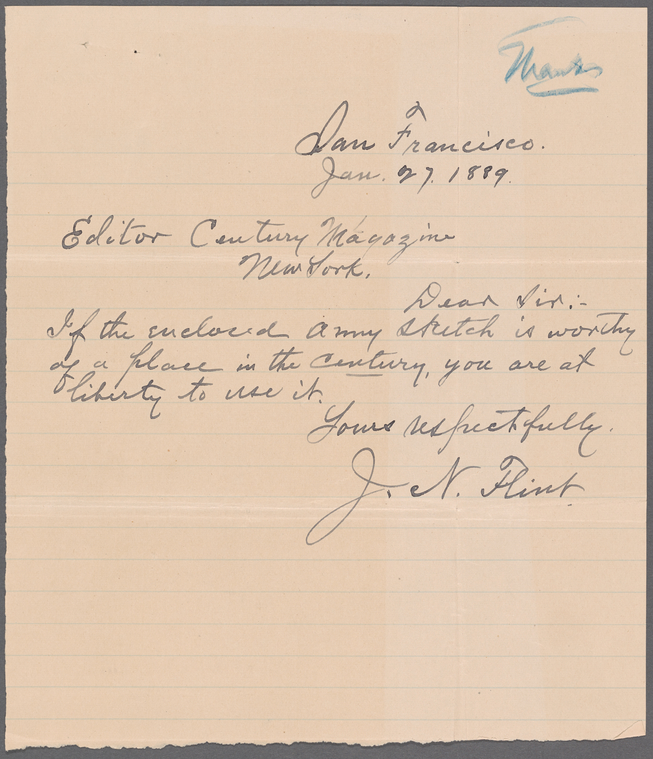 Thanks
San Francisco.
Jan. 27. 1889.
Editor Century Magazine
New York.
Dear Sir:-
If the enclosed Army sketch is worthy
of a place in the Century, you are at
liberty to use it.
Yours respectfully.
J. N. Flint